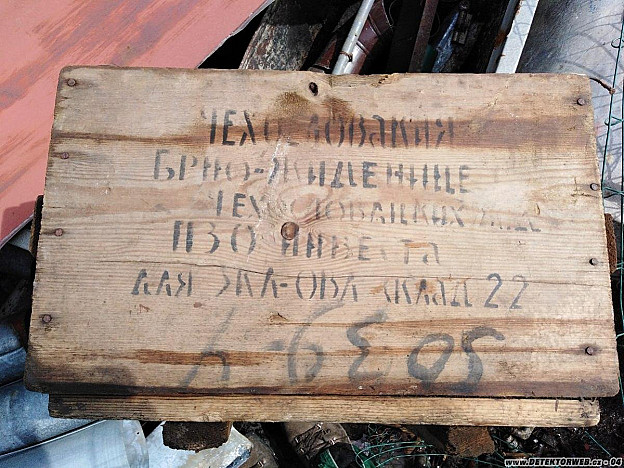 ЧЕХОСЛОВАКИЯ
БРНО-ЖИДЕНИЦЕ
ЧЕХОСЛОВАЦКИХ
ПЗО ИНВЕСТА
ДЛЯ СКЛАД 22
505
www.DETEKTORWEB.cz - 04